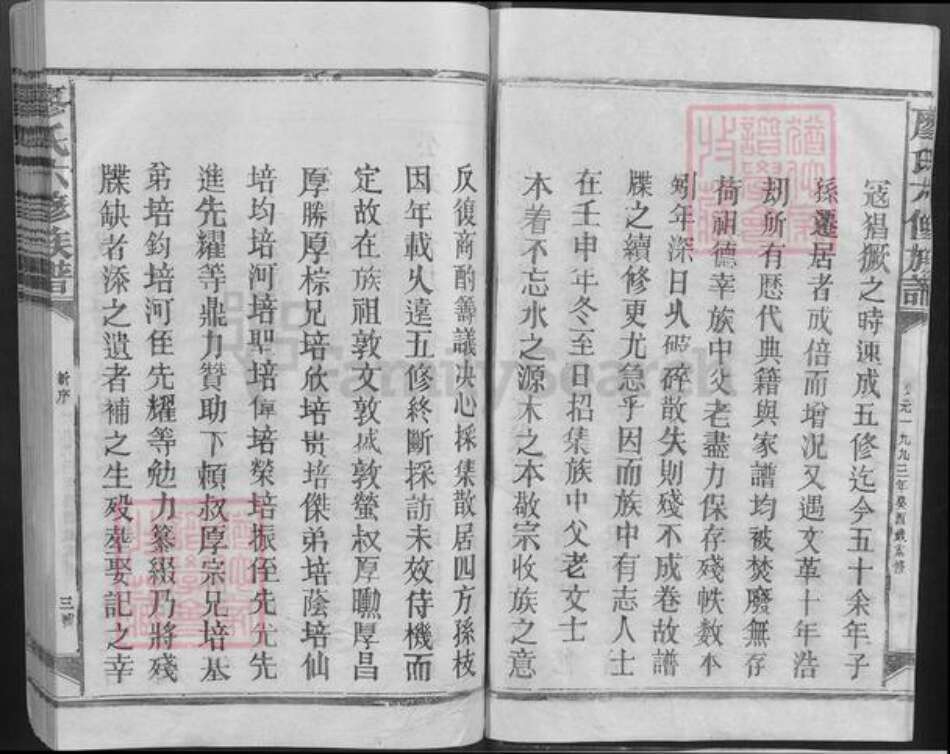 廖氏六修族譜
公元一九九三年癸酉歲六修
寇猖獗之時涑成五修迄今五十余年子
孫遷居者成倍而增況又遇文革十年浩
劫所有歷代典籍與家譜均被焚廢無存
荷祖德幸族中父老盡力保存殘帙數本
矧年深日久破碎散失則殘不成卷故譜
牒之續修更尤急乎因而族中有志人士
在壬申年冬至日招集族中父老文士
本着不忘水之源木之本敬宗收族之意
反復商酌籌議决心採集散居四方孫枝
因年載久遠五修終斷採訪未效侍機而
定故在族祖敦文敦城敦螢叔厚勳厚昌
厚勝厚棕兄培欣培贵培傑弟培蔭培仙
培均培河培聖培偉培榮培振侄先允先
進先耀等鼎力贊助下頼叔厚宗兄培基
弟培鈞培河侄先耀等勉力纂綴乃將殘
牒缺者添之遺者補之生殁塟娶記之幸
廖氏六修族譜
新序
三
FamilySearch